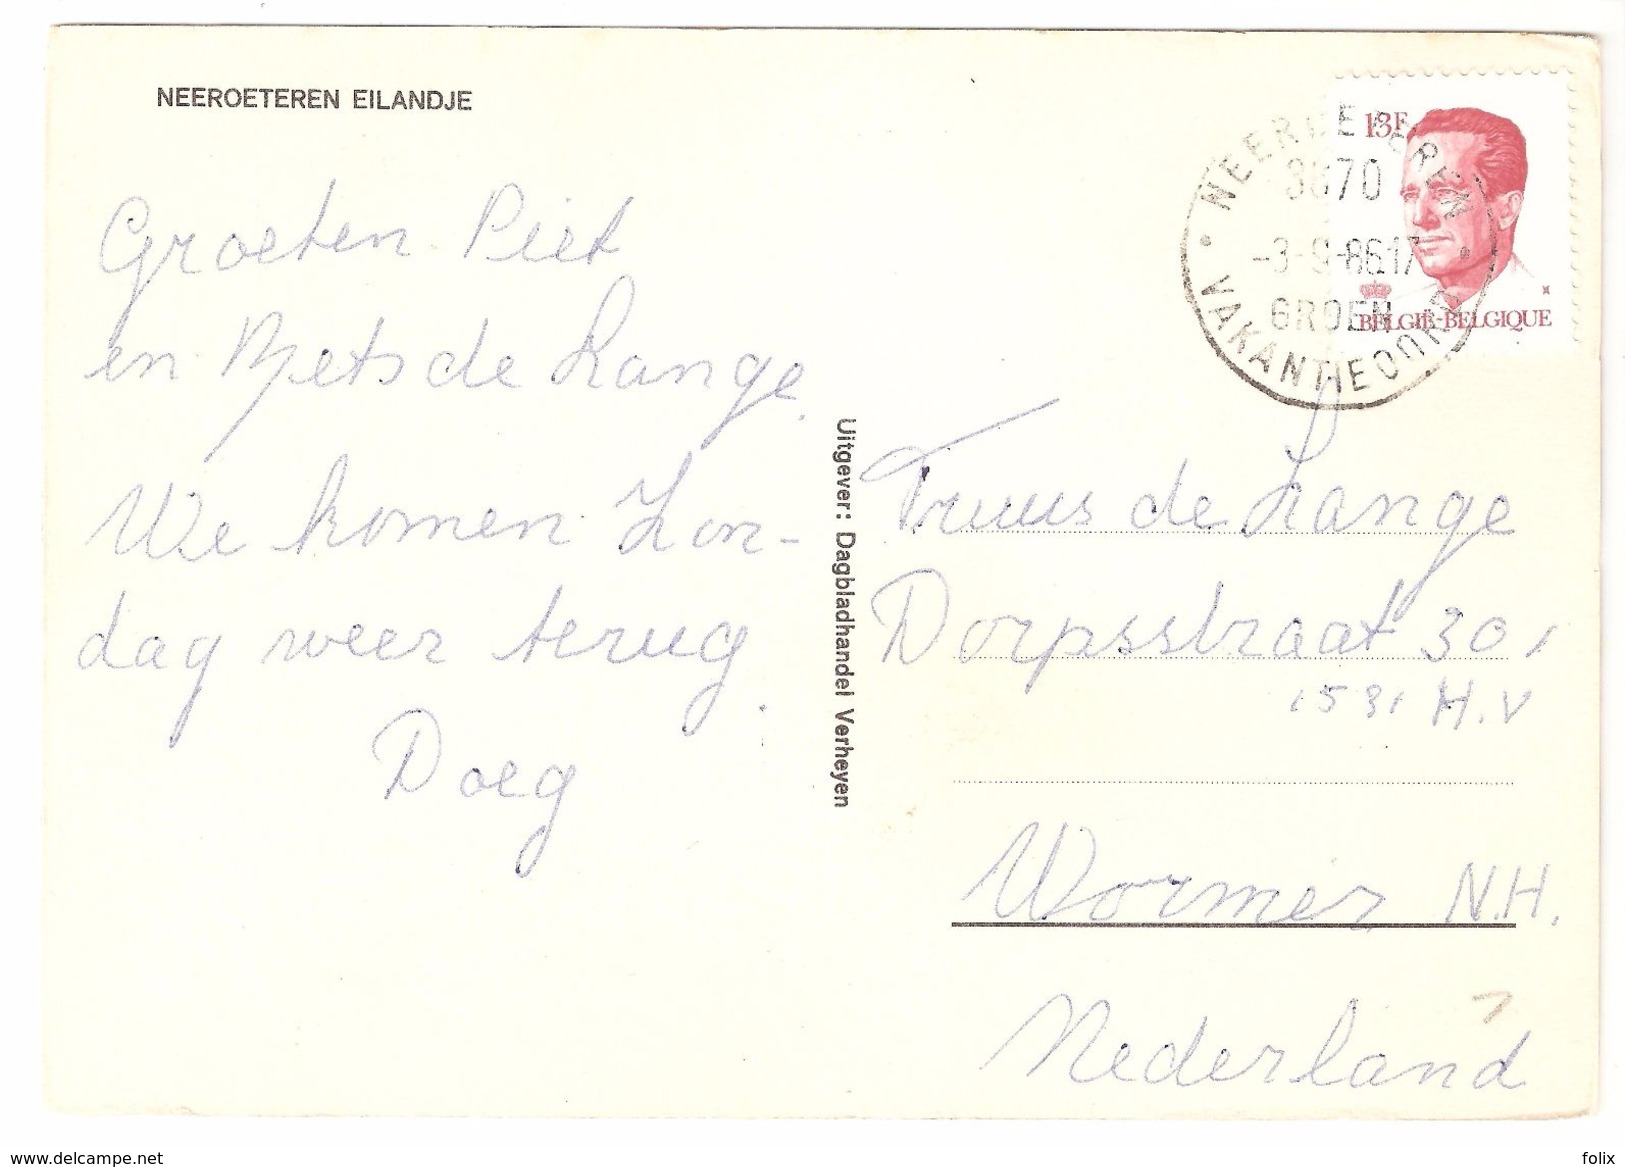 NEEROETEREN EILANDJE
Groeten Piet
en Bets de Lange.
We komen Zon-
dag weer terug.
Doeg
Uitgever: Dagbladhandel Verheyen
13F
BELGIE-BELGIQUE
NEEROETEREN
3670
-3-9-86.17
GROEN
VAKANTIEOORD
Truus de Lange
Dorpsstraat 301
1531 H.V
Wormer N.H.
Nederland
www.delcampe.net
folix